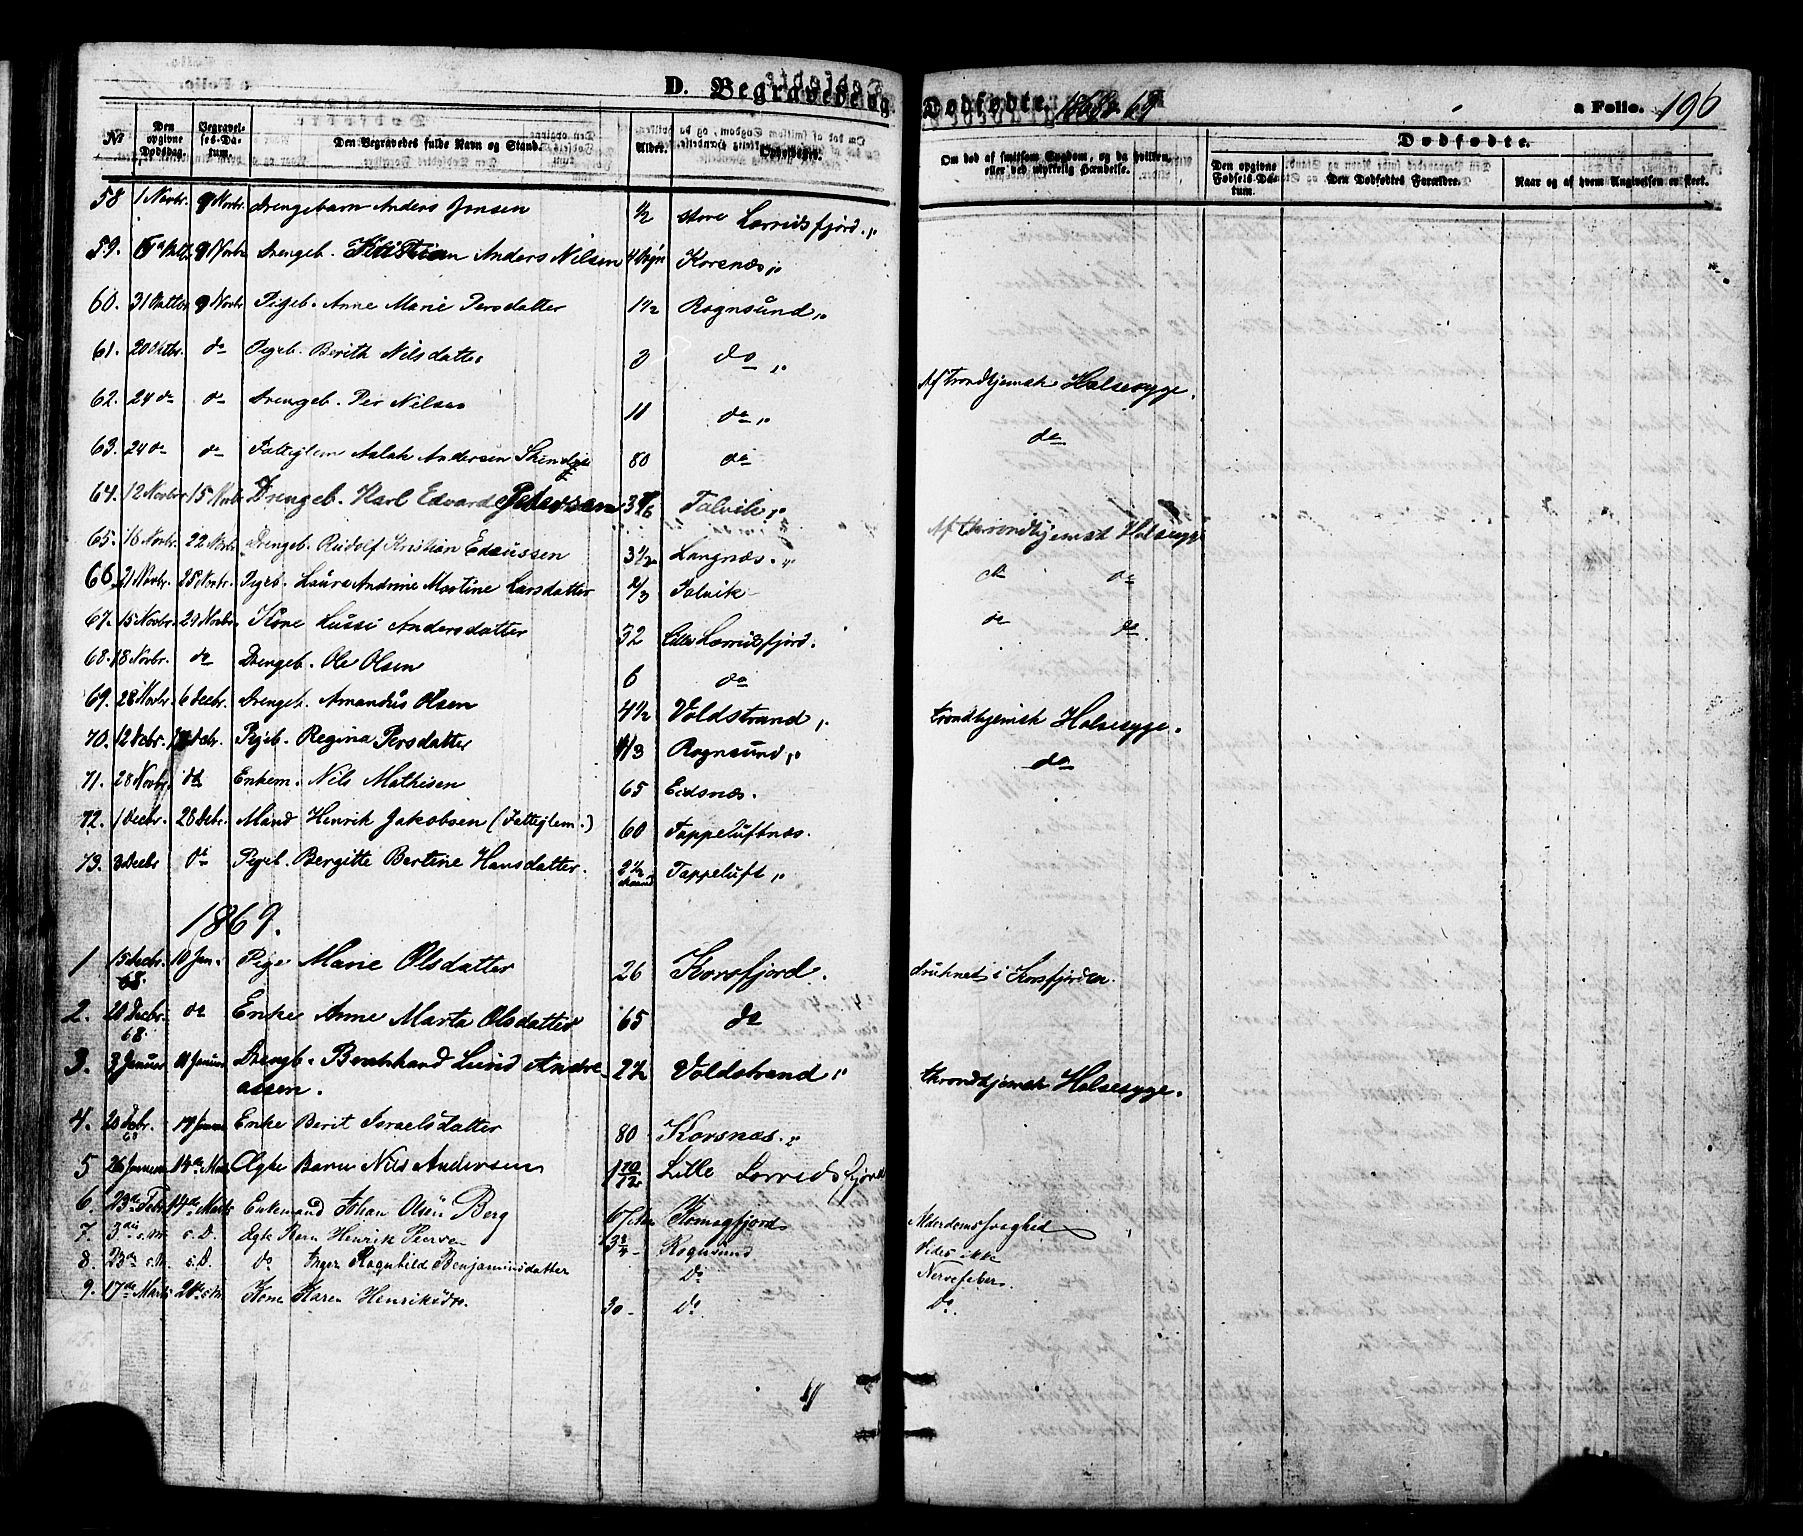 D. Begravede og Dødfødte. 1868-69 a Folio. 196
No Den opgivne Dødsdag. Begravelses-Datum. Den Begravedes fulde Navn og Stand. Alder. Opholdssted. Om død af smitsom Sygdom, og da hvilken, eller ved ulykkelig Hændelse. Dødfødte. Den opgivne Fødsels-Datum. Den Dødfødtes Forældre. Naar og af hvem Angivelsen er skeet.
58 1 Novbr. 9 Novbr. Drengebarn Anders Jonsen 1/2 store Lerrisfjord
59. Oktbr. 9 Novbr Drengeb. Kristian Anders Nilsen 4 Døgn Korsnæs
60. 31 Oktbr 9 Novbr Pigeb. Anne Marie Persdatter 1 1/2 Rognsund
61. 20 Oktbr. do Pigeb. Berith Nilsdatter 3 do
62. 24 do do Drengeb. Per Nilsen 11 do Af trondhjemsk Halsesyge.
63. 24 do do Fattiglem Aslak Andersen 80 do do
64. 12 Novbr 15 Novbr Drengeb. Karl Edvard Pedersen 3 Talvik
65. 16 Novbr. 22 Novbr. Drengeb. Rudolf Kristian 3 1/2 Langnæs. Af throndhjemsk Halsesyge
66. 21 Novbr. 28 Novbr. Pigeb. Laura Andrine Martine Larsdatter 2/3 Talvik do do
67. 15 Novbr. 29 Novbr. Kone Lussi Andersdatter 32 Lille Lerrisfjord. do do.
68. 18 Novbr. do Drengeb. Ole Olsen 6 do
69. 28 Novbr. 6 Decbr. Drengeb. Amandus Olsen 4 1/2 Voldstrand trondhjemsk Halsesyge.
70. 12 Decbr. Decbr. Pigeb. Regina Persdatter Rognsund do
71. 28 Novbr. do Enkem. Nils Mathisen 65 Eidsnæs.
72. 1 Decbr. 28 Decbr. Mand Henrik Jakobsen (Fattiglem.) 60 Tappeluftnæs.
73. 3 Decbr do Pigeb. Bergitte Bertine Hansdatter. 2 1/2 Maaned Tappeluft
1869.
1 15 Decbr. 68. 10 Jan. Pige Marie Olsdatter 26 Korsfjord. druknet i Korsfjorden.
2. 20 Decbr. 68. do Enke Anne Marta Olsdatter 65 do
3. 3 Januar 11 Januar Drengb. Berthard Lund Andre-
assen. 2 1/2 Voldstrand throndhjemsk Halsesyge.
4. 20 Debr. 68 17 Januar Enke Berit Israelsdatter 80 Korsnæs.
5 26 Januar 14de Marts Ægte Barn Nils Andersen 1 10/12 Lille Lerrisfjord
6. 23de Febr. 14de Marts Enkemand Johan Olsen Berg 67 Komagfjord Alderdomssvaghed
7. 3die s.M. s.D. Ægte Barn Henrik 3 3/4 - Rognsund Vides ikke
8. 23de s.M. s.D. do Inger Ragnhild Benjaminsdatter Do Nervefeber.
9. 17de Marts 21de s.M. Kone Karen Henriksdr. 30 - Do Do.